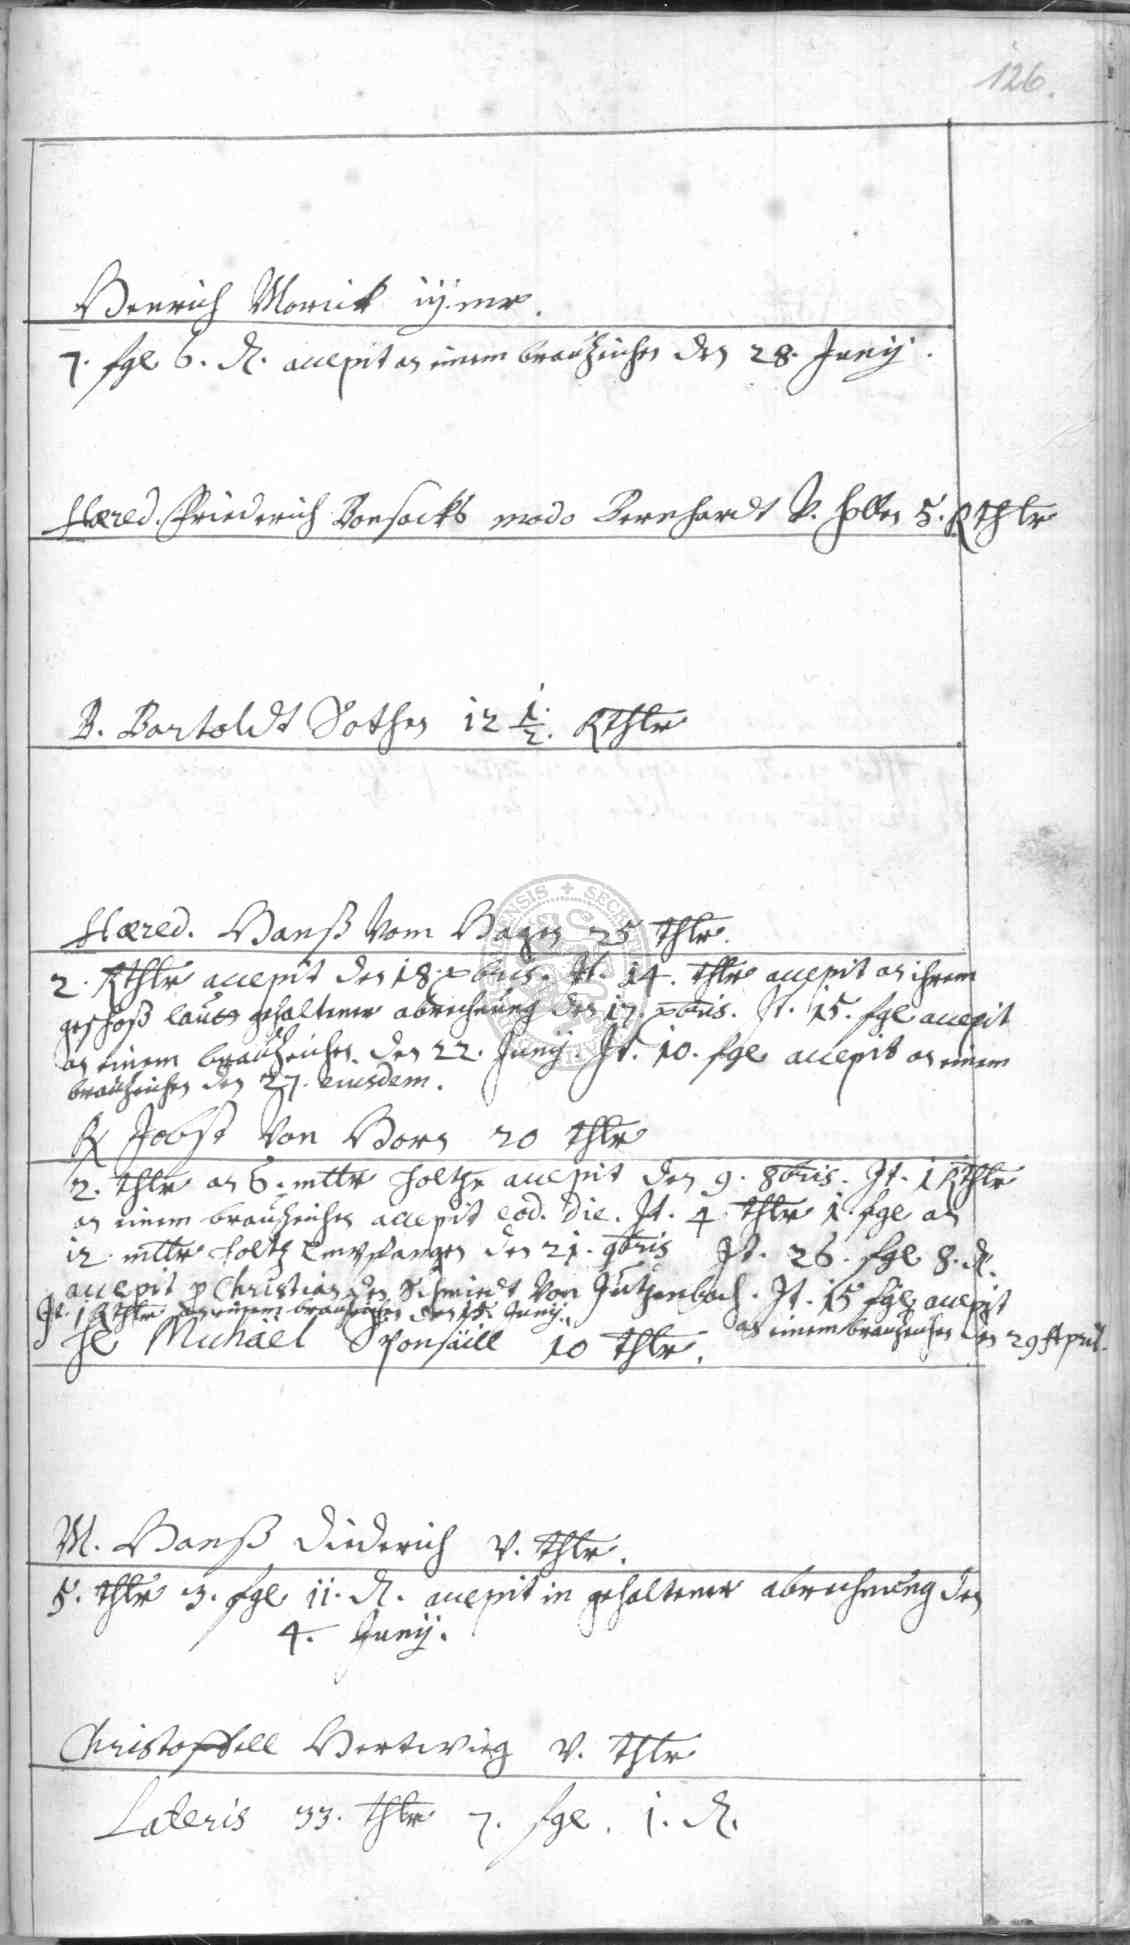 126.
Henrich Morick iij. mr.
7. sgl 6. d. accepit an einem brauzeichen den 28. Junij.
Hæred. Friederich Bonsacks modo Bernhardt V. Hollen 5. Rthlr
B. Bartoldt Sothen 12 1/2. Rthlr
Hæred. Hanß Vom Hagen 25 thlr.
2. Rthlr accepit den 18. xbris. It. 14. thlr accepit an ihrem
geschoß laut gehaltener abrechnung den 17. xbris. It. 15. sgl accepit
an einem brauzeichen den 22. Junij. It. 10. sgl accepit an einem
brauzeichen den 27. eiusdem.
Jobst Von Horn 20 thlr
2. thlr an 6. mltr holtze accepit den 9. 8bris. It. 1 Rthlr
an einem brauzeichen accepit eod. die. It. 4. thlr 1. sgl an
12 mltr holtz empfangen den 21. 9bris It. 26. sgl 8. d.
accepit p Christian den Schmiedt Von Jützenbach. It. 15 sgl accepit
an einem brauzeichen den 29 April.
It. 1 Rthlr an einem brauzeichen den 15. Junij.
H. Michäel Sponsäill 10 thlr.
M. Hanß Diederich V. thlr.
5. thlr 3. sgl 11. d. accepit in gehaltener abrechnung den
4. Junij.
Christoffell Hertwig V. thlr
Lateris 33. thlr 7. sgl. 1. d.